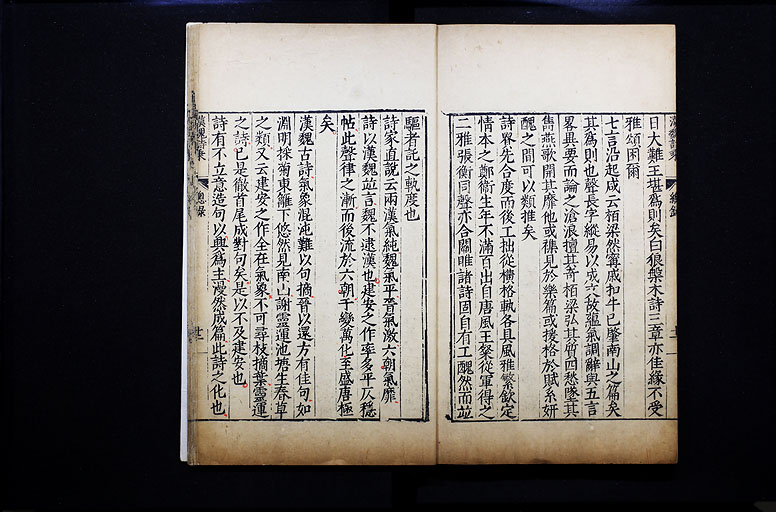 日大難王堪爲則矣白狼槃木詩三章亦佳緣不受
雅頌困爾
七言沿起咸云栢梁然甯戚扣牛已肇南山之篇矣
其爲則也聲長字縱易以成文故蘊氣調辭與五言
畧異要而論之滄浪擅其奇栢梁弘其質四愁墜其
雋燕歌開其靡他或襍見於樂篇或援格於賦系妍
醜之間可以類推矣
詩畧先合度而後工拙從横格軌各具風雅繁欽定
情本之鄭衛生年不滿百出自唐風王粲從軍得之
二雅張衡同聲亦合關雎諸詩固自有工醜然而並
驅者託之軌度也
詩家直説云兩漢氣純魏氣平晉氣激六朝氣靡
詩以漢魏並言魏不逮漢也建安之作率多平仄穩
帖此聲律之漸而後流於六朝千變萬化至盛唐極
矣
漢魏古詩氣象混沌難以句摘晉以還方有佳句如
淵明採菊東籬下悠然見南山謝靈運池塘生春草
之類又云建安之作全在氣象不可尋枝摘葉靈運
之詩已是徹首尾成對句矣是以不及建安也
詩有不立意造句以興爲主漫然成篇此詩之化也
漢魏詩乘
總錄